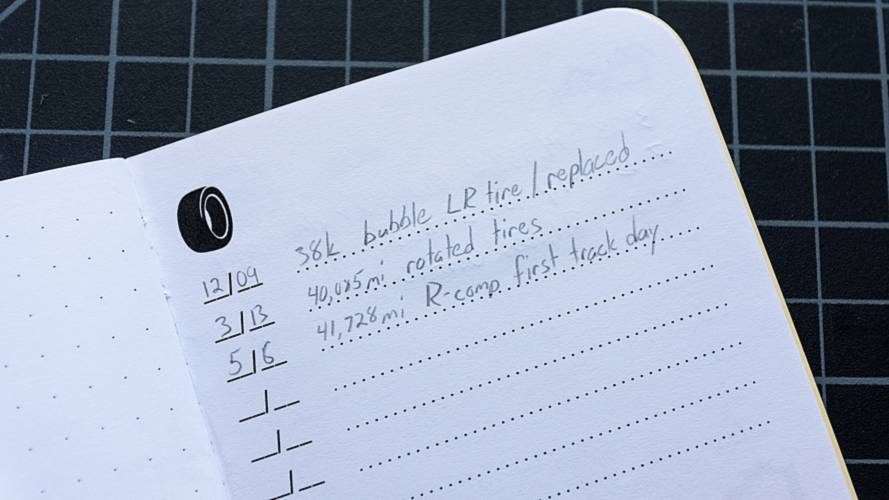 12/09 38k bubble LR tire / replaced
3/13 40,025mi rotated tires
5/6 41,728mi R-comp first track day